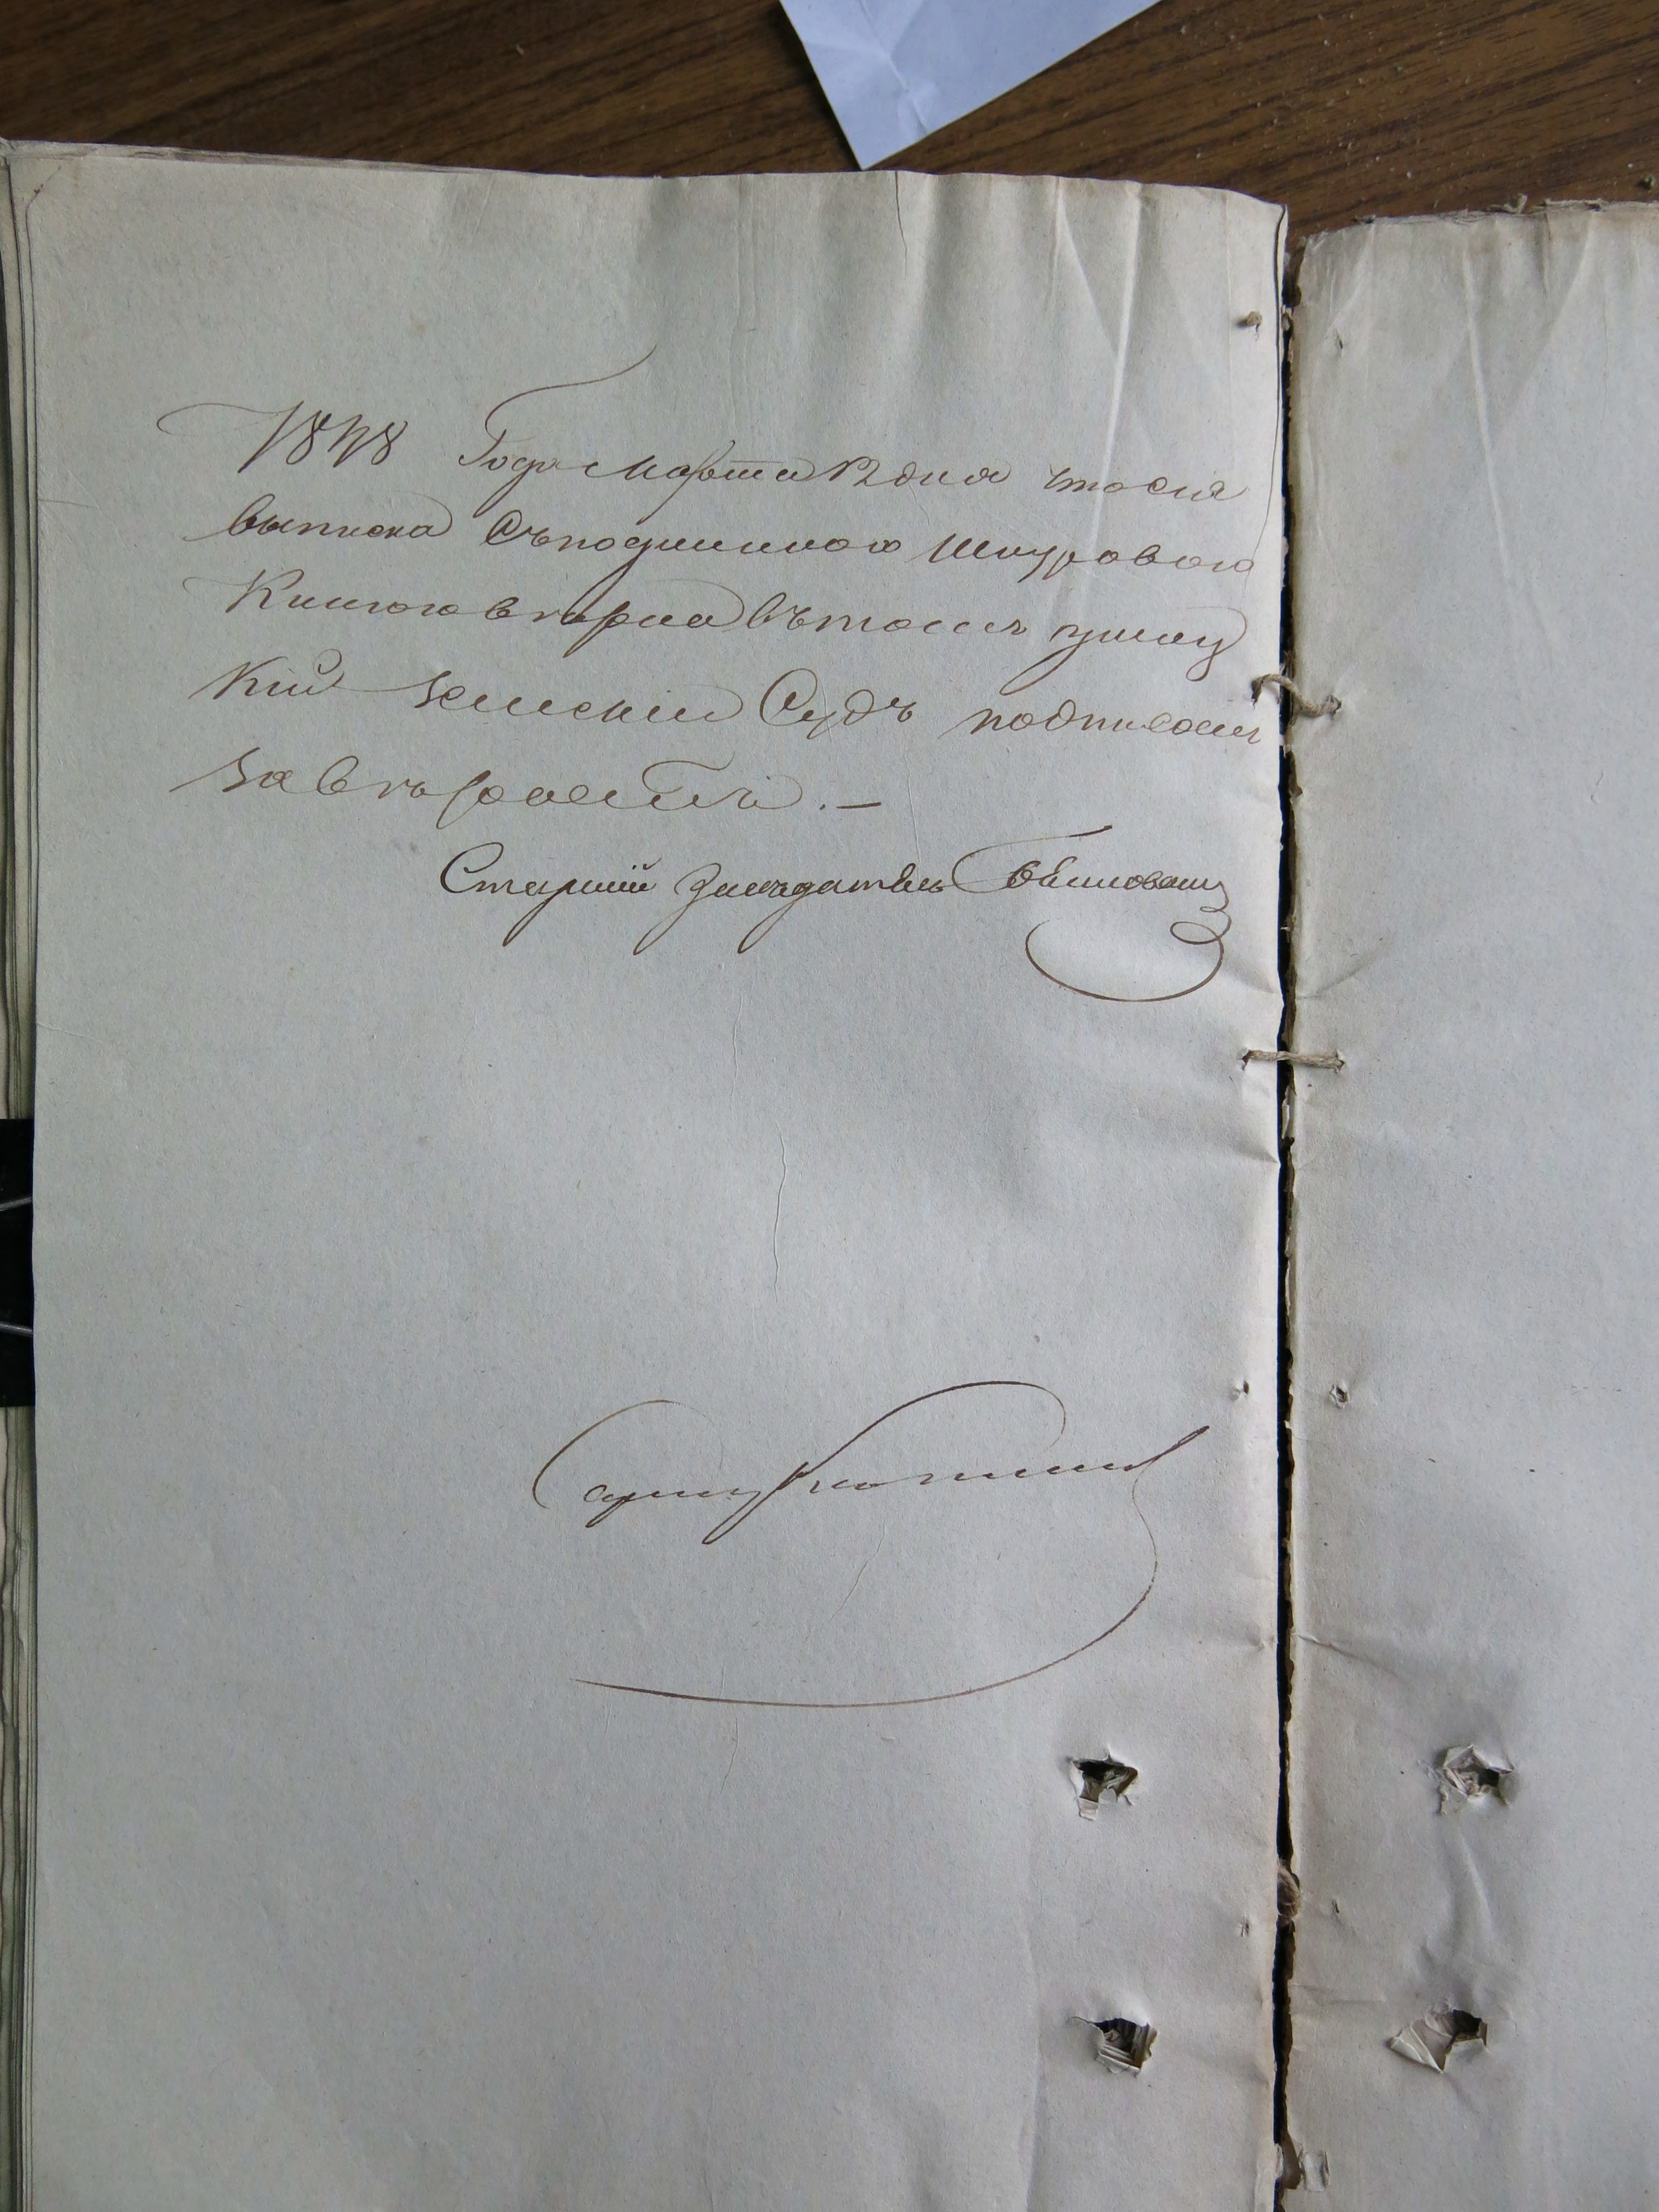 1848 Года Марта 12 дня что сия
выписка Съподлинною Шнуровою
Книгою верна въ томъ
кій Земскій Судъ подписомъ
завѣряетъ. —
Старшій Заседатель